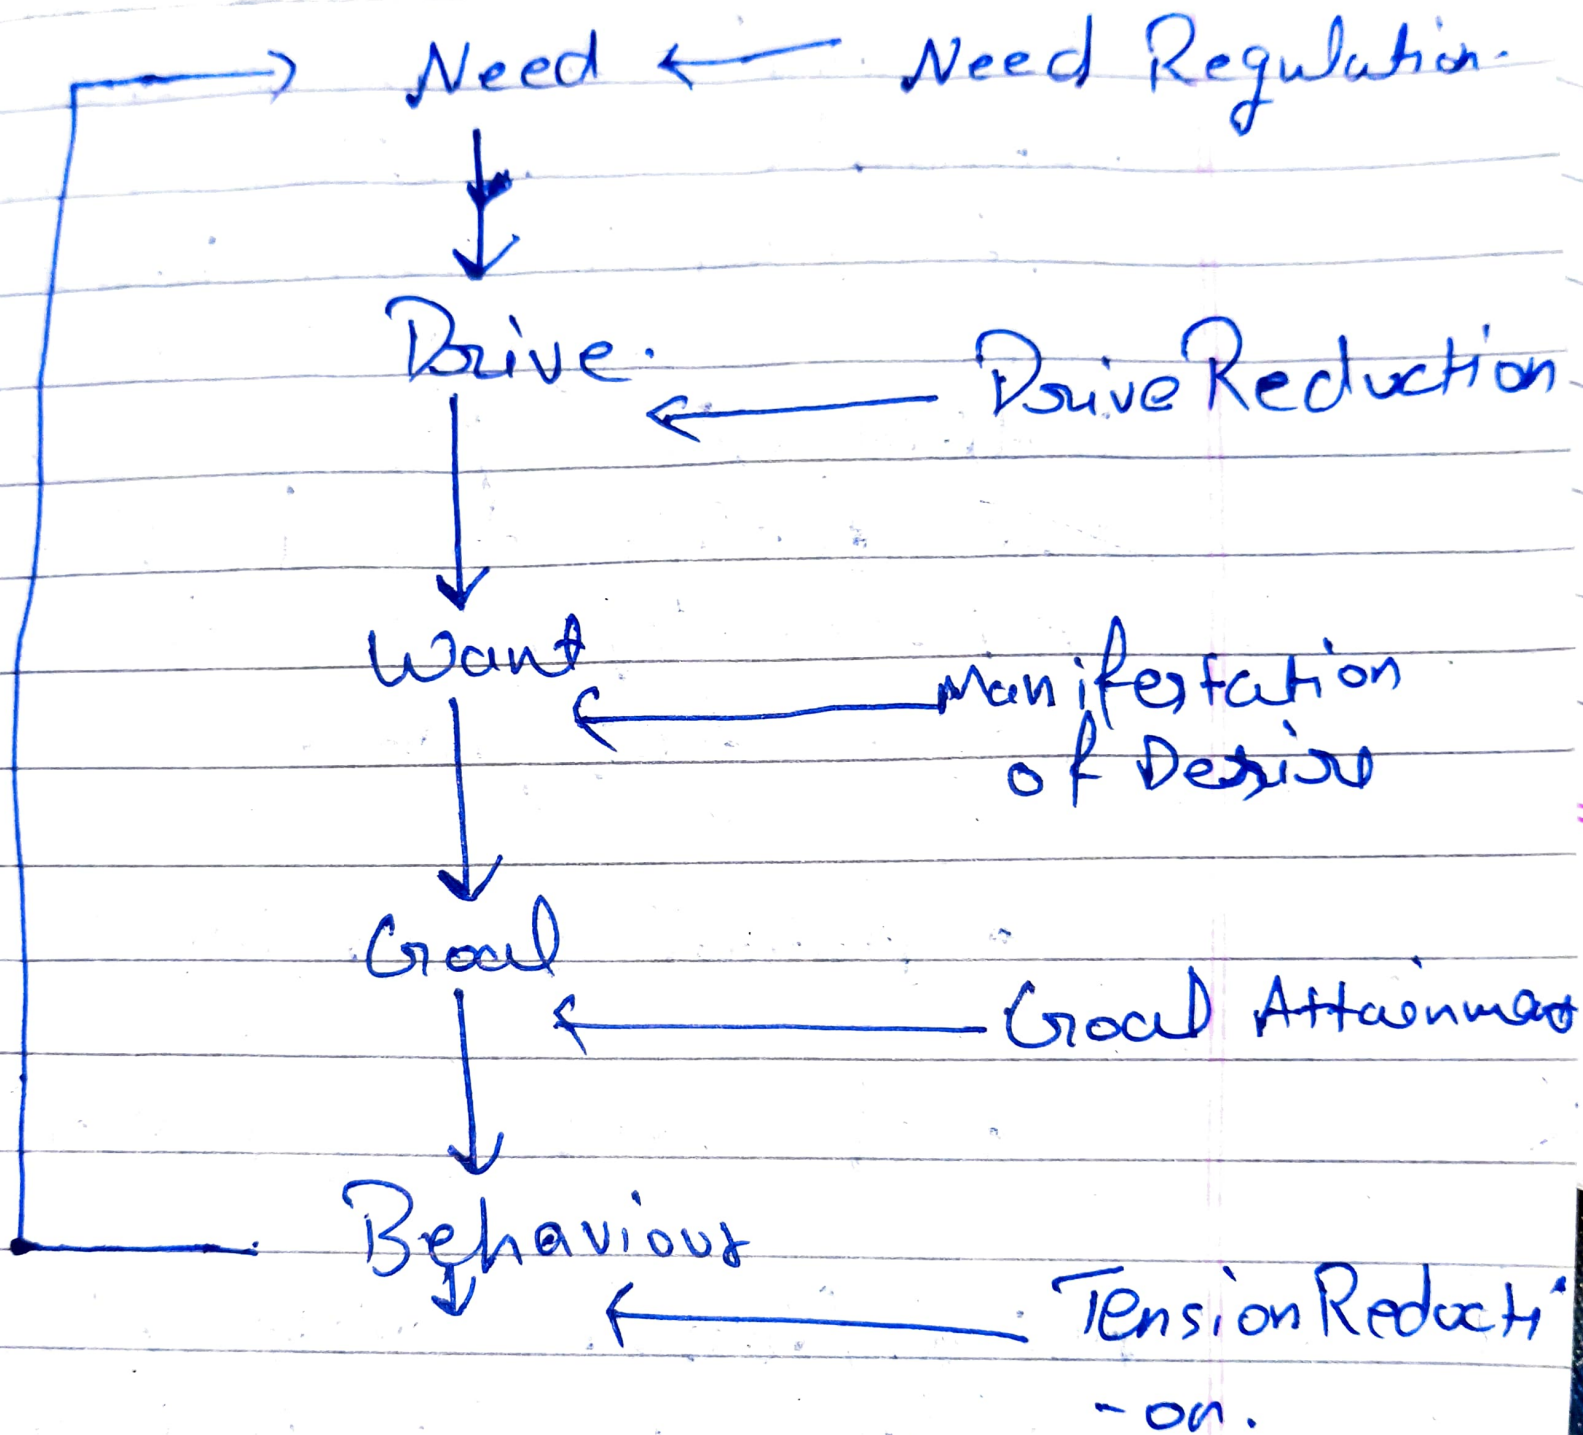 Need Need Regulation.
Drive. Drive Reduction
Want Manifestation
of Desire
Goal Goal Attainment
Behaviour
Tension Reducti
-on.